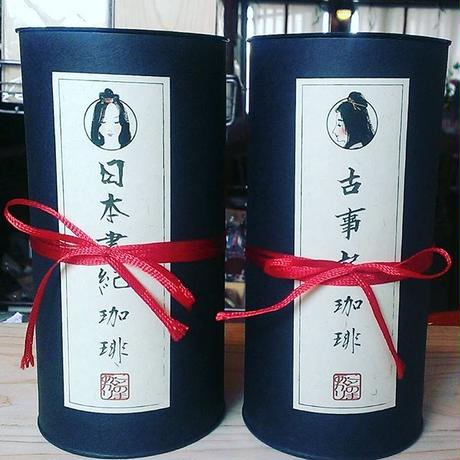 日本書紀珈琲
古事記珈琲